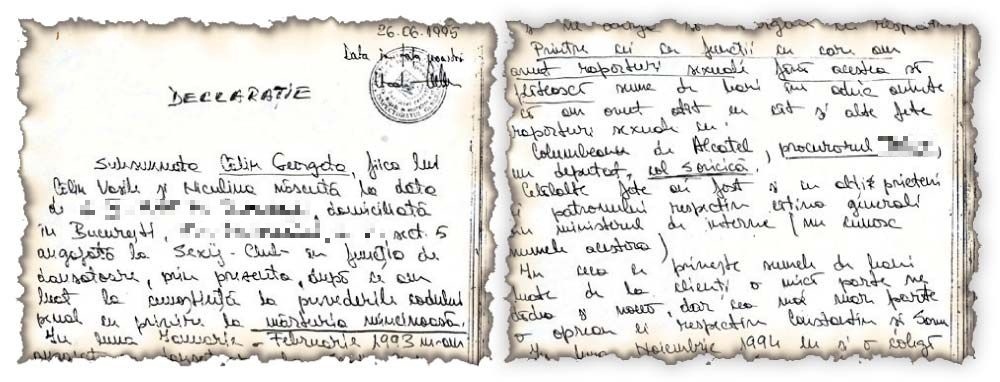 26.06.1995
Data în fața noastră
DECLARAȚIE
Subsemnata Călin Georgeta, fiica lui
Călin Vasile și Niculina născută la data
de domiciliată
în București, sect. 5
angajată la Sexy-Club în funcția de
dansatoare, prin prezenta, după ce am
luat la cunoștință la prevederile codului
penal cu privire la mărturia mincinoasă.
În luna Ianuarie - Februarie 1993 m-am
Printre cei cu funcții cu care am
avut raporturi sexuale fără aceștia să
plătească sume de bani îmi aduc aminte
că am avut atât eu cât și alte fete
raporturi sexuale cu
Columbeanu de Alcatel, procurorul
un deputat, col Soricică.
Celelalte fete au fost și cu alți prieteni
ai patronului respectiv câțiva generali
din ministerul de interne (nu cunosc
numele acestora)
În ceea ce privește sumele de bani
luate de la clienți o mică parte ne
dădea și nouă, dar cea mai mare parte
o opreau ei respectiv Constantin și Sorin
În luna Noiembrie 1994 eu și o colegă